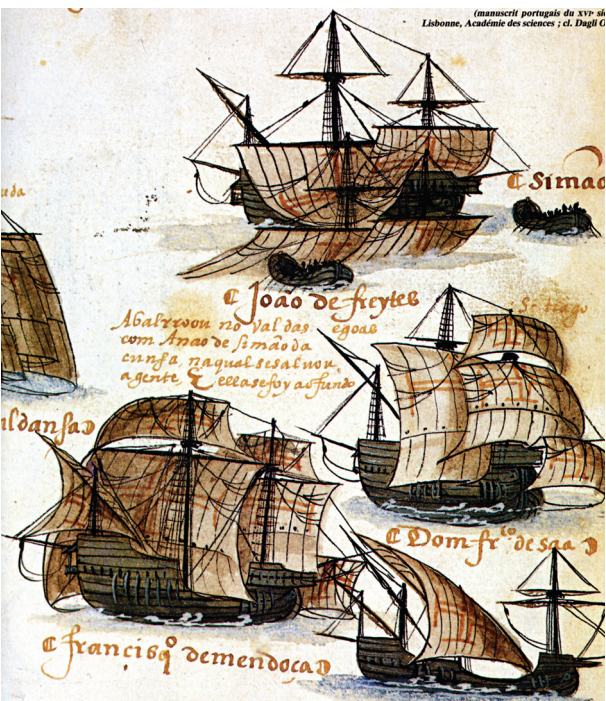 (manuscrit portugais du XVIᵉ siè
Lisbonne, Académie des sciences ; cl. Dagli O
uda
Simão
João de freytes
Abalrroou no Val das egoas
com Anao de simão da
cunha naqual se salvou
agente, E ella se foy ao fundo
S. tiago
ldansa
Dom fr.ᶜᵒ de saa
francisqº demendoça